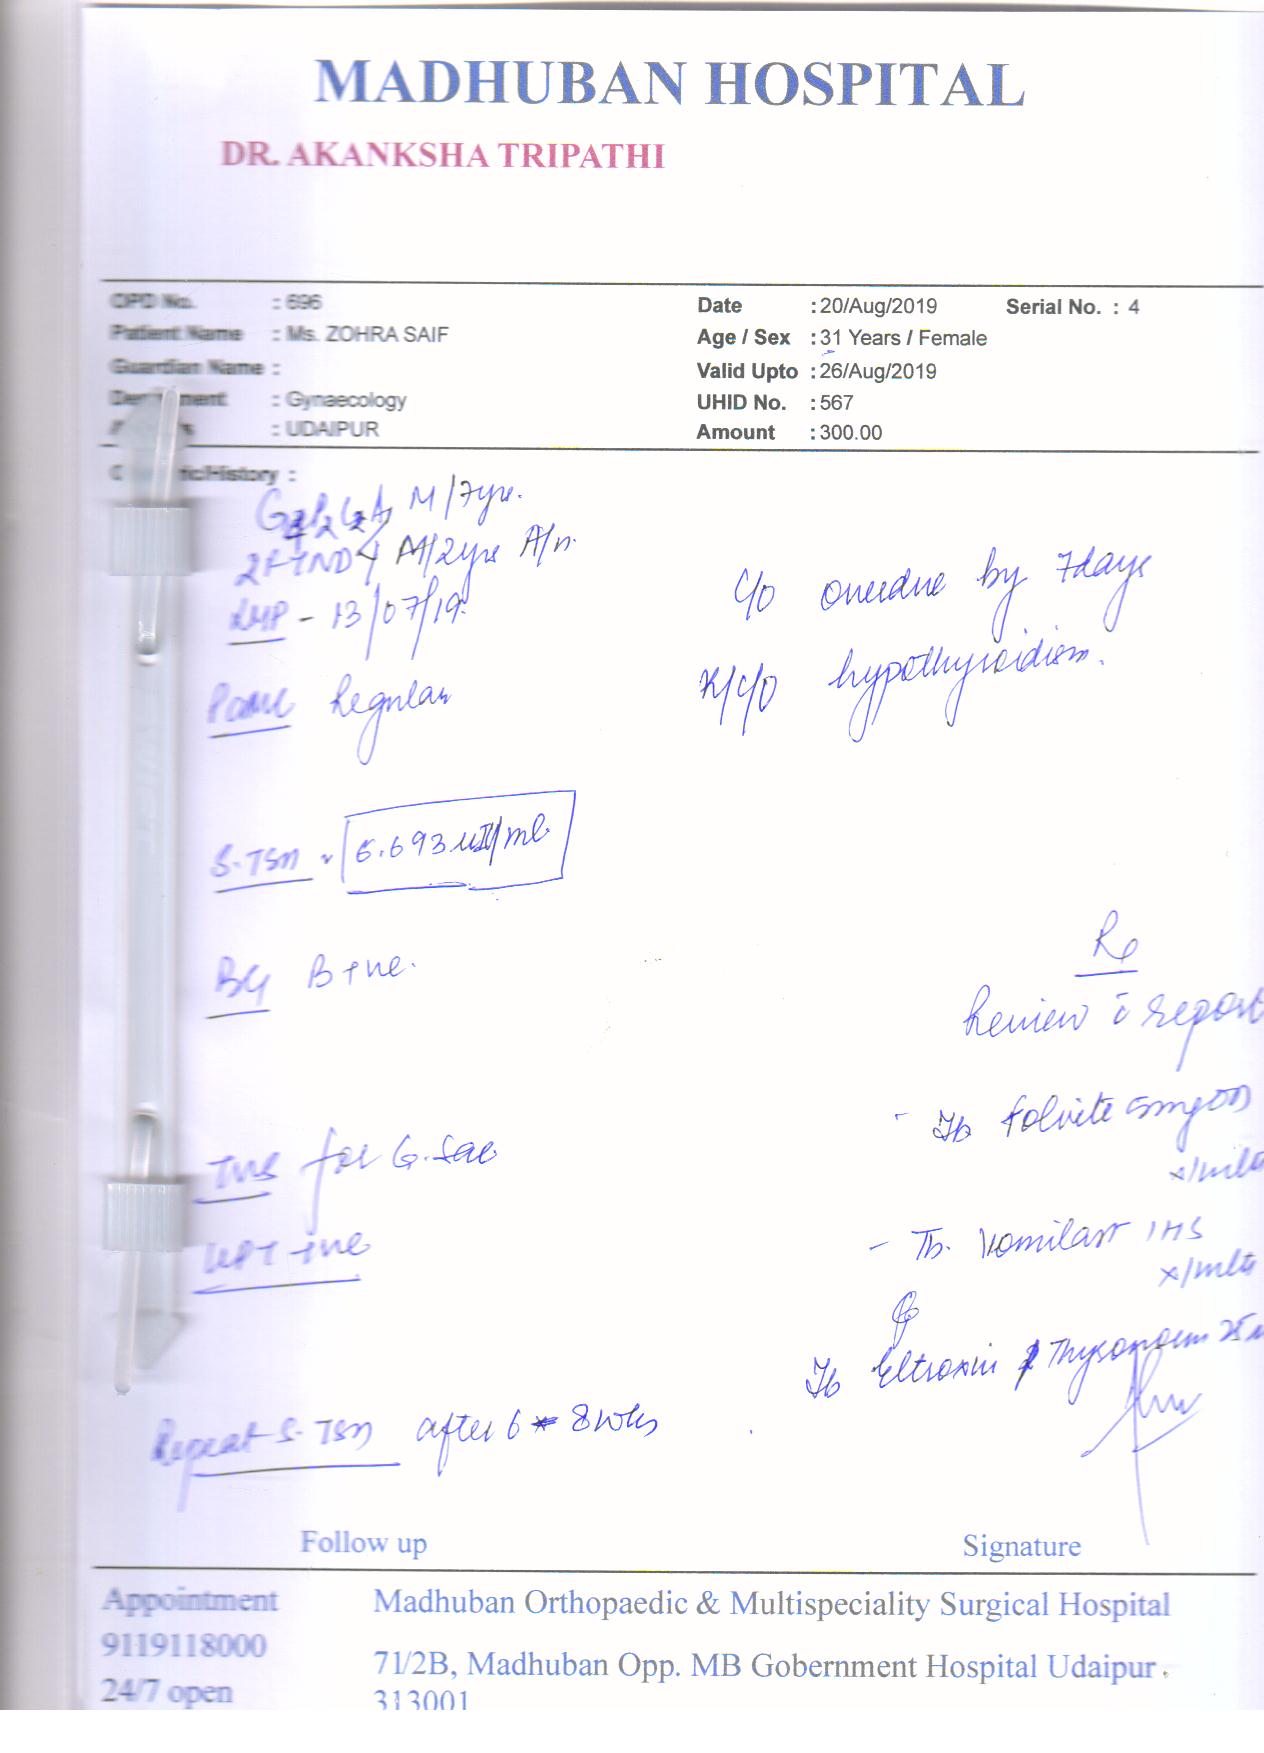 MADHUBAN HOSPITAL
DR. AKANKSHA TRIPATHI
OPD No. : 696
Date : 20/Aug/2019 Serial No. : 4
Patient Name : Ms. ZOHRA SAIF
Age / Sex : 31 Years / Female
Guardian Name :
Valid Upto : 26/Aug/2019
: Gynaecology
UHID No. : 567
: UDAIPUR
Amount : 300.00
M/7yrs.
2FTND
LMP - 13/07/19
C/O overdue by 7days
K/C/O hypothyroidism.
Regular
S.TSH
6.693 uIU/ml
BG B +ve.
Rx
Review c̄ report
TVS for G.Sac
Tb Folvite 5mg OD
UPT +ve
- Tb. Vomilast 1HS
Tb Eltroxin / Thyronorm 25
Repeat S. TSH after 6 - 8 wks
Follow up
Signature
Appointment
9119118000
24/7 open
Madhuban Orthopaedic & Multispeciality Surgical Hospital
71/2B, Madhuban Opp. MB Gobernment Hospital Udaipur
313001